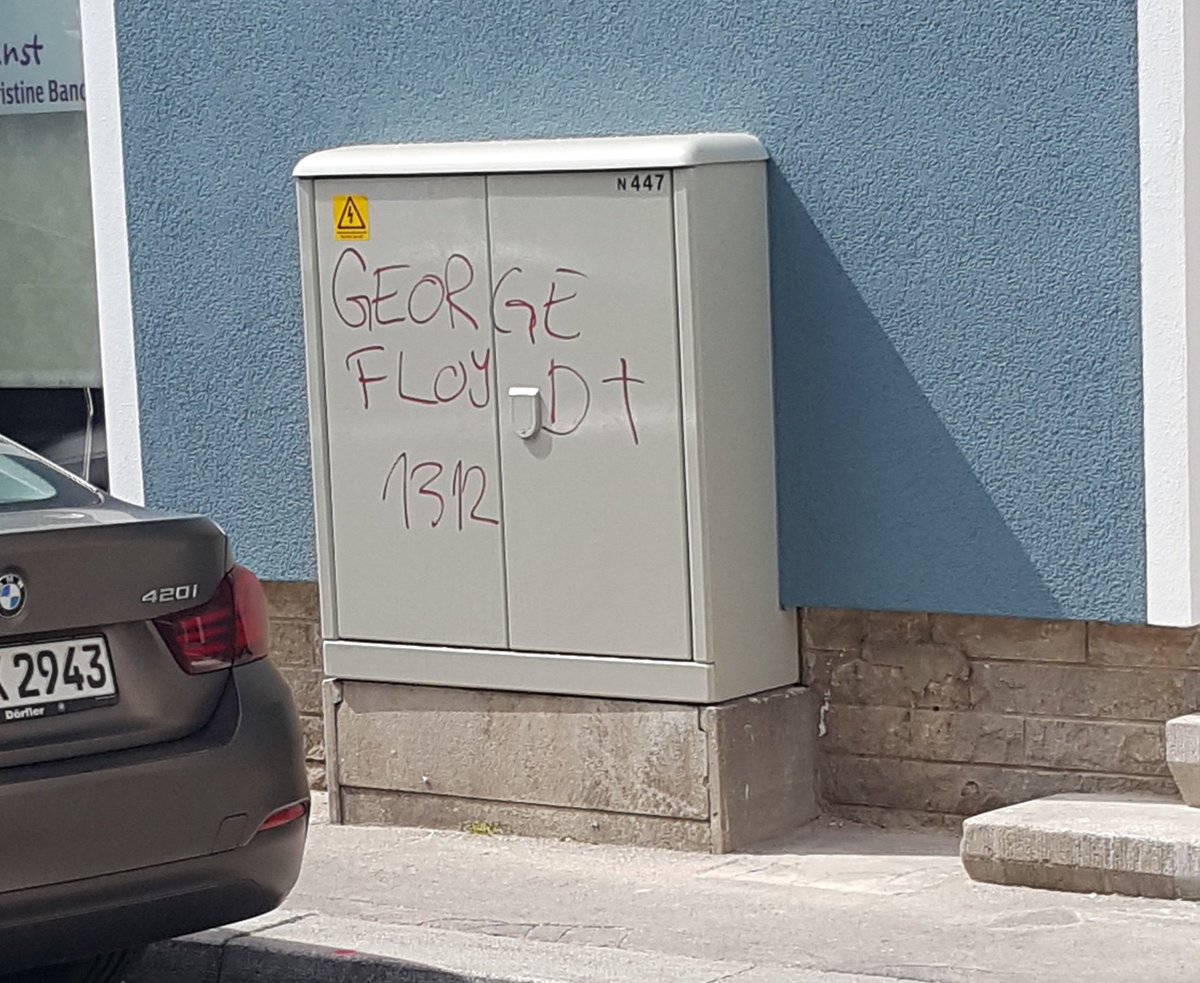 nst
ristine Band
N447
GEORGE
FLOYD†
1312
420i
2943
Dörfler